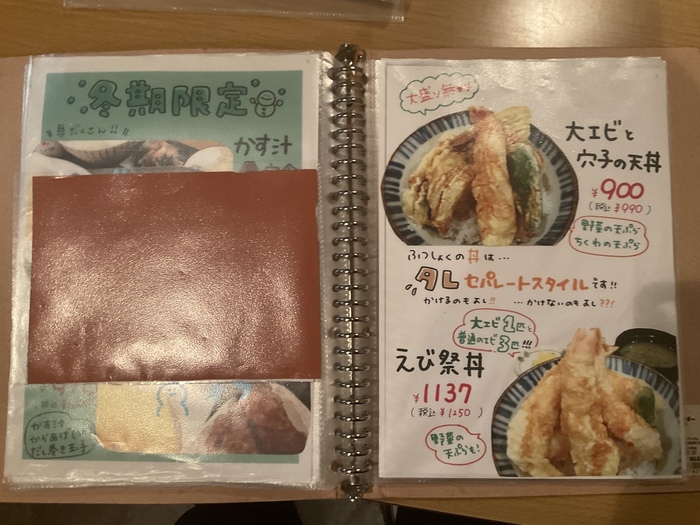 冬期限定
具だくさん!!
かす汁
かす汁
からあげ
だし巻き玉子
大盛り無料!
大エビと
穴子の天丼
¥900
(税込 ¥990)
野菜の天ぷら
ちくわの天ぷら
ふつしょくの丼は…
タレセパレートスタイルです!!
かけるのもよし!! …かけないのもよし??!
大エビ1匹と
普通のエビ3匹!!!
えび祭丼
¥1137
(税込 ¥1250)
野菜の
天ぷらも!